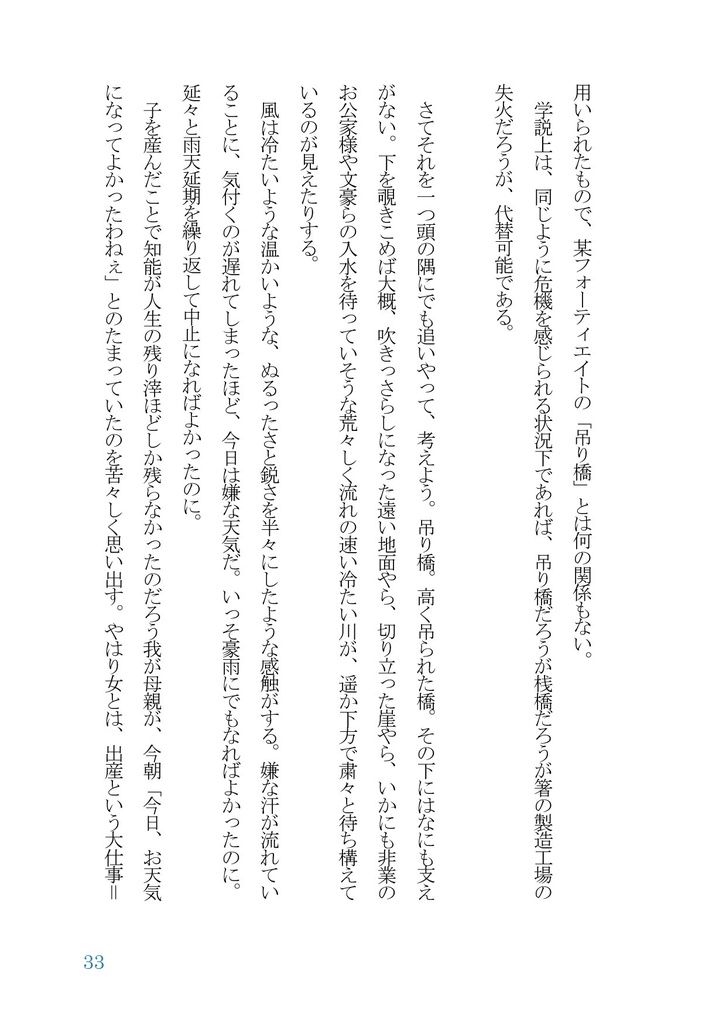 用いられたもので、某フォーティエイトの「吊り橋」とは何の関係もない。
学説上は、同じように危機を感じられる状況下であれば、吊り橋だろうが桟橋だろうが箸の製造工場の
失火だろうが、代替可能である。
さてそれを一つ頭の隅にでも追いやって、考えよう。吊り橋。高く吊られた橋。その下にはなにも支え
がない。下を覗きこめば大概、吹きっさらしになった遠い地面やら、切り立った崖やら、いかにも非業の
お公家様や文豪らの入水を待っていそうな荒々しく流れの速い冷たい川が、遥か下方で粛々と待ち構えて
いるのが見えたりする。
風は冷たいような温かいような、ぬるったさと鋭さを半々にしたような感触がする。嫌な汗が流れてい
ることに、気付くのが遅れてしまったほど、今日は嫌な天気だ。いっそ豪雨にでもなればよかったのに。
延々と雨天延期を繰り返して中止になればよかったのに。
子を産んだことで知能が人生の残り滓ほどしか残らなかったのだろう我が母親が、今朝「今日、お天気
になってよかったわねぇ」とのたまっていたのを苦々しく思い出す。やはり女とは、出産という大仕事＝
33